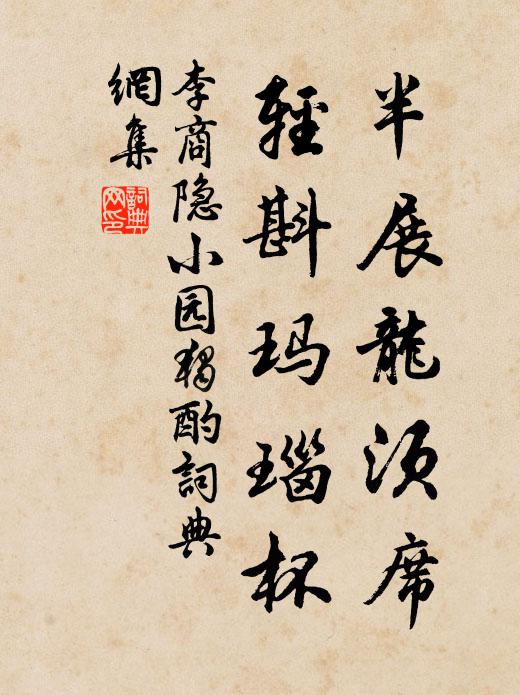 半展龍须席
輕斟玛瑙杯
李商隐小园獨酌詞典
網集
詞典
网印